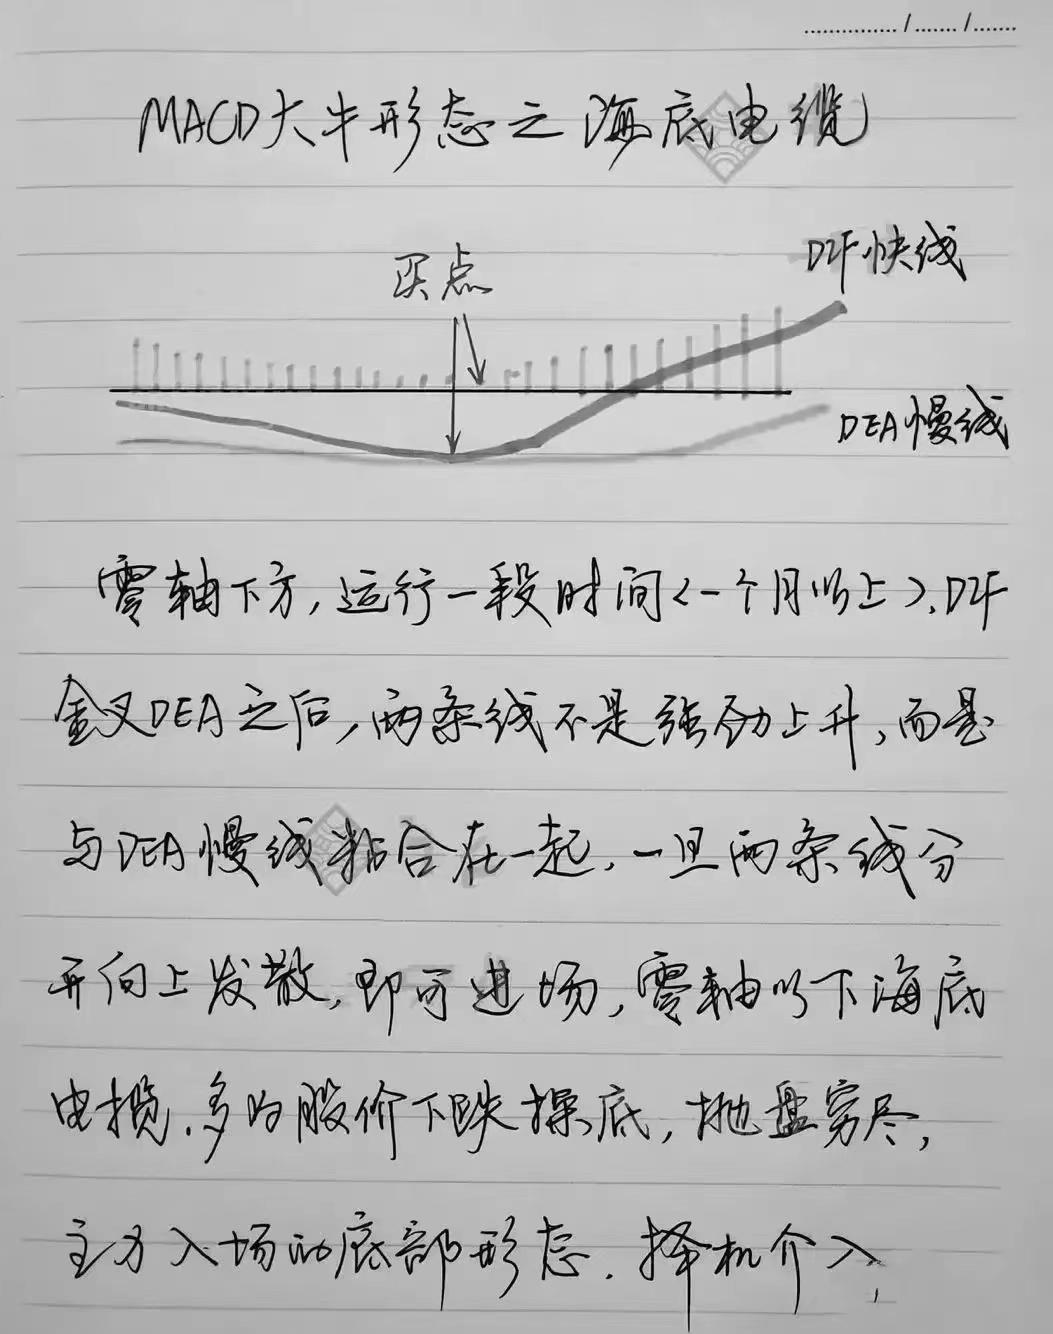 MACD大牛形态之海底电缆
买点
DIF快线
DEA慢线
零轴下方,运行一段时间<一个月以上>,DIF
金叉DEA之后,两条线不是强劲上升,而是
与DEA慢线粘合在一起,一旦两条线分
开向上发散,即可进场,零轴以下海底
电揽,多为股价下跌探底,抛盘穷尽,
主力入场的底部形态.择机介入,